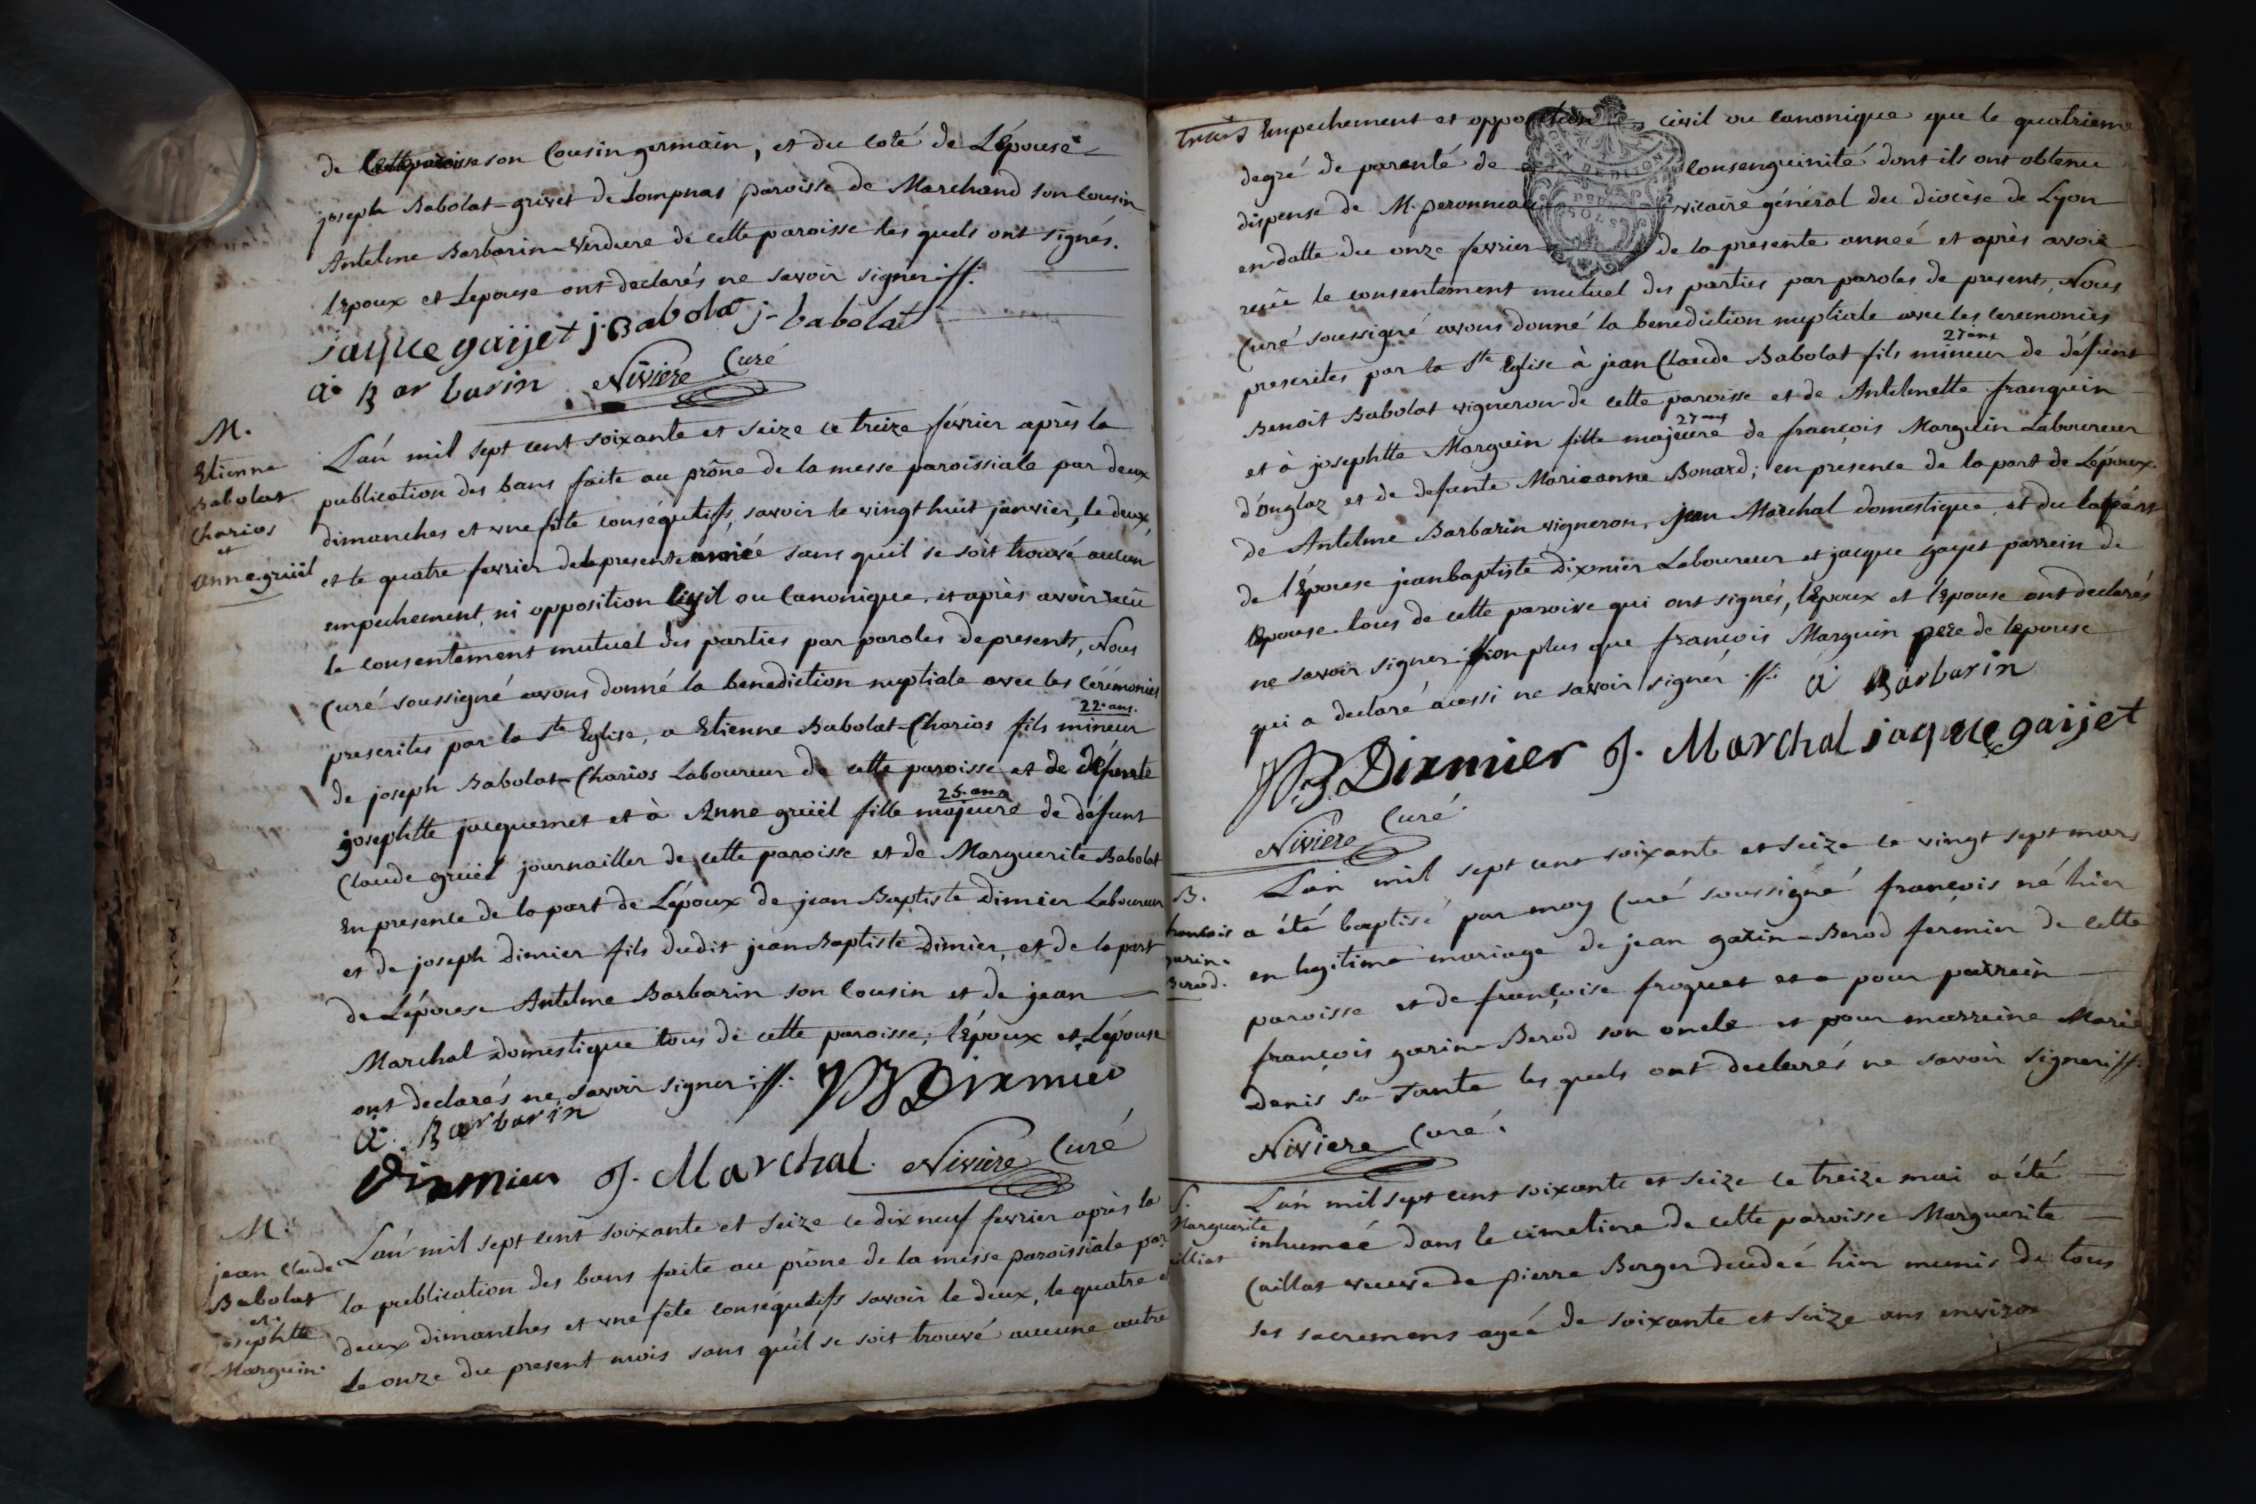 de cette paroisse son Cousin germain, et du coté de L'épouse
joseph Babolat-grivet de Lompnas paroisse de Marchand son Cousin
Antelme Barbarin-Verdure de cette paroisse les quels ont signés.
l'Epoux et Lepouse ont declarés ne savoir signer
jaque gaijet j. Babolat j-babolat
a. Barbarin Niviere Curé
M.
Etienne
Babolat
Charios
et
anne grüel
L'an mil sept cent soixante et seize ce treize février après la
publication des bans faite au prône de la messe paroissiale par deux
dimanches et une fête conséqutifs, savoir le vingt huit janvier, le deux,
et le quatre fevrier de la presente année sans quil se soit trouvé aucun
empechement, ni opposition Civil ou Canonique. et après avoir recü
le consentement mutuel des parties par paroles de presents, Nous
Curé soussigné avons donné la benediction nuptiale avec les Cérémonies
22 ans.
prescrites par la Ste Eglise, a Etienne Babolat-Charios fils mineur
de joseph Babolat-Charios Laboureur de cette paroisse et de défunte
25 ans
josephtte jacquemet et à Anne grüel fille majeure de défunt
Claude grüel journailler de cette paroisse et de Marguerite Babolat
En presence de la part de L'époux de jean Baptiste Dimier Laboureur
et de joseph Dimier fils dudit jean Baptiste Dimier, et de la part
de L'épouse Antelme Barbarin son Cousin et de jean
Marchal domestique tous de cette paroisse; l'Epoux et L'épouse
ont declarés ne savoir signer JB Dixmier
a. Barbarin
Dixmier J. Marchal. Niviere Curé
M.
jean Claude
Babolat
et
josephtte
Marguin.
L'an mil sept cent soixante et seize ce dix neuf fevrier après la
la publication des bans faite au prône de la messe paroissiale par
deux dimanches et une fête conséqutifs savoir le deux, le quatre et
le onze du present mois sans qu'il se soit trouvé aucune autre
Empechement et opposition civil ou canonique que le quatrieme
degré de parenté de Consenguinité dont ils ont obtenu
dispense de M. peronneau vicaire général du diocèse de Lyon
en datte du onze fevrier de la presente anneé et après avoir
recüe le consentement mutuel des parties par paroles de present, Nous
Curé soussigné avons donné la benediction nuptiale avec les Ceremonies
27 ans
prescrites par la Ste Eglise à jean Claude Babolat fils mineur de défunt
Benoit Babolat vigneron de cette paroisse et de Antelmette franquin
27 ans
et à josephtte Marguin fille majeure de françois Marguin Laboureur
d'onglaz et de defunte Marieanne Bonard; en presence de la part de L'époux
de Antelme Barbarin vigneron, jean Marchal domestique et du la part
de l'Epouse jean baptiste Dixmier Laboureur et jacque gayet parrein de
lepouse tous de cette paroisse qui ont signés, l'Epoux et l'Epouse ont declarés
ne savoir signer non plus que françois Marguin pere de lepouse
qui a declaré aussi ne savoir signér a Barbarin
JB Dixmier J. Marchal jaque gaijet
Niviere Curé
B.
francois
garin-
Berod.
L'an mil sept cent soixante et seize ce vingt sept mars
a été baptisé par moy Curé soussigné françois né hier
en legitime mariage de jean garin-Berod fermier de cette
paroisse et de françoise froquet et a pour parrein
françois garin-Berod son oncle et pour marreine Marie
Denis sa Tante les quels ont declarés ne savoir signer
Niviere Curé.
S.
Marguerite
L'an mil sept cent soixante et seize ce treize mai a été
inhumeé dans le cimetiere de cette paroisse Marguerite
Caillat veuve de pierre Berger decedeé hier munis de tous
ses sacremens ageé de soixante et seize ans environ